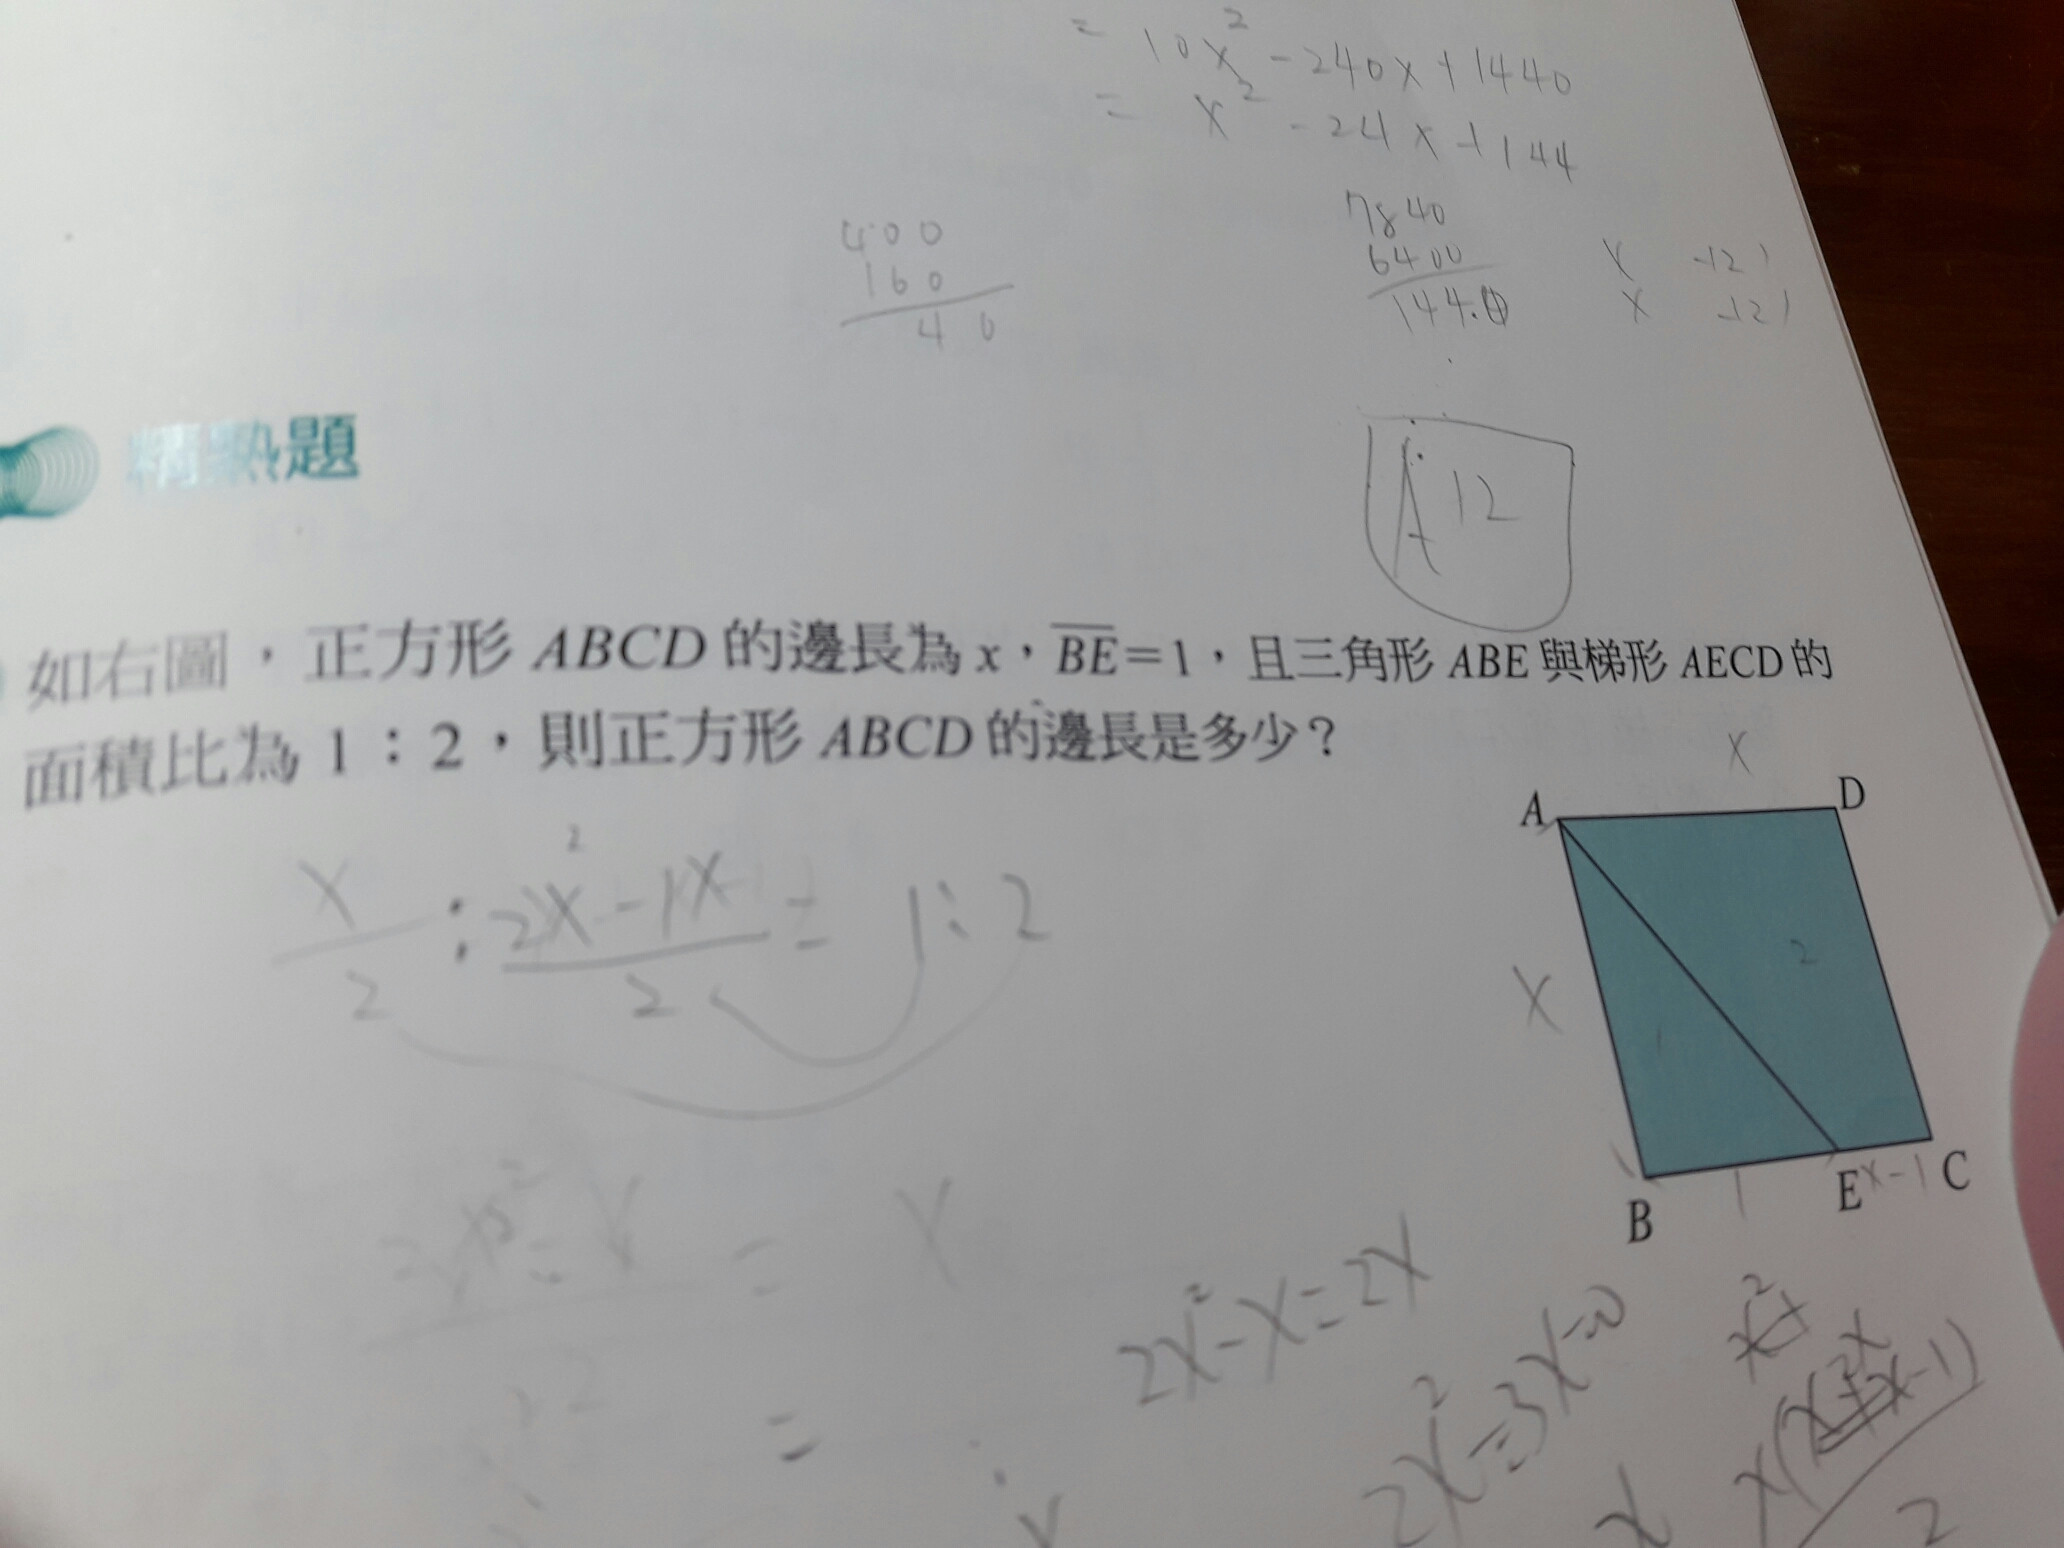 = 10x² - 240x + 1440
= x² - 24x + 144
400
160
40
7840
6400
1440
x -12
x -12
A 12
精熟題
如右圖，正方形 ABCD 的邊長為 x，BE=1，且三角形 ABE 與梯形 AECD 的
面積比為 1：2，則正方形 ABCD 的邊長是多少？
x
A
D
x/2 : 2x²-1x/2 = 1:2
x
1
2
B
1
E
x-1
C
= x
2x²-x=2x
2x²-3x=0
x²
2
=
x